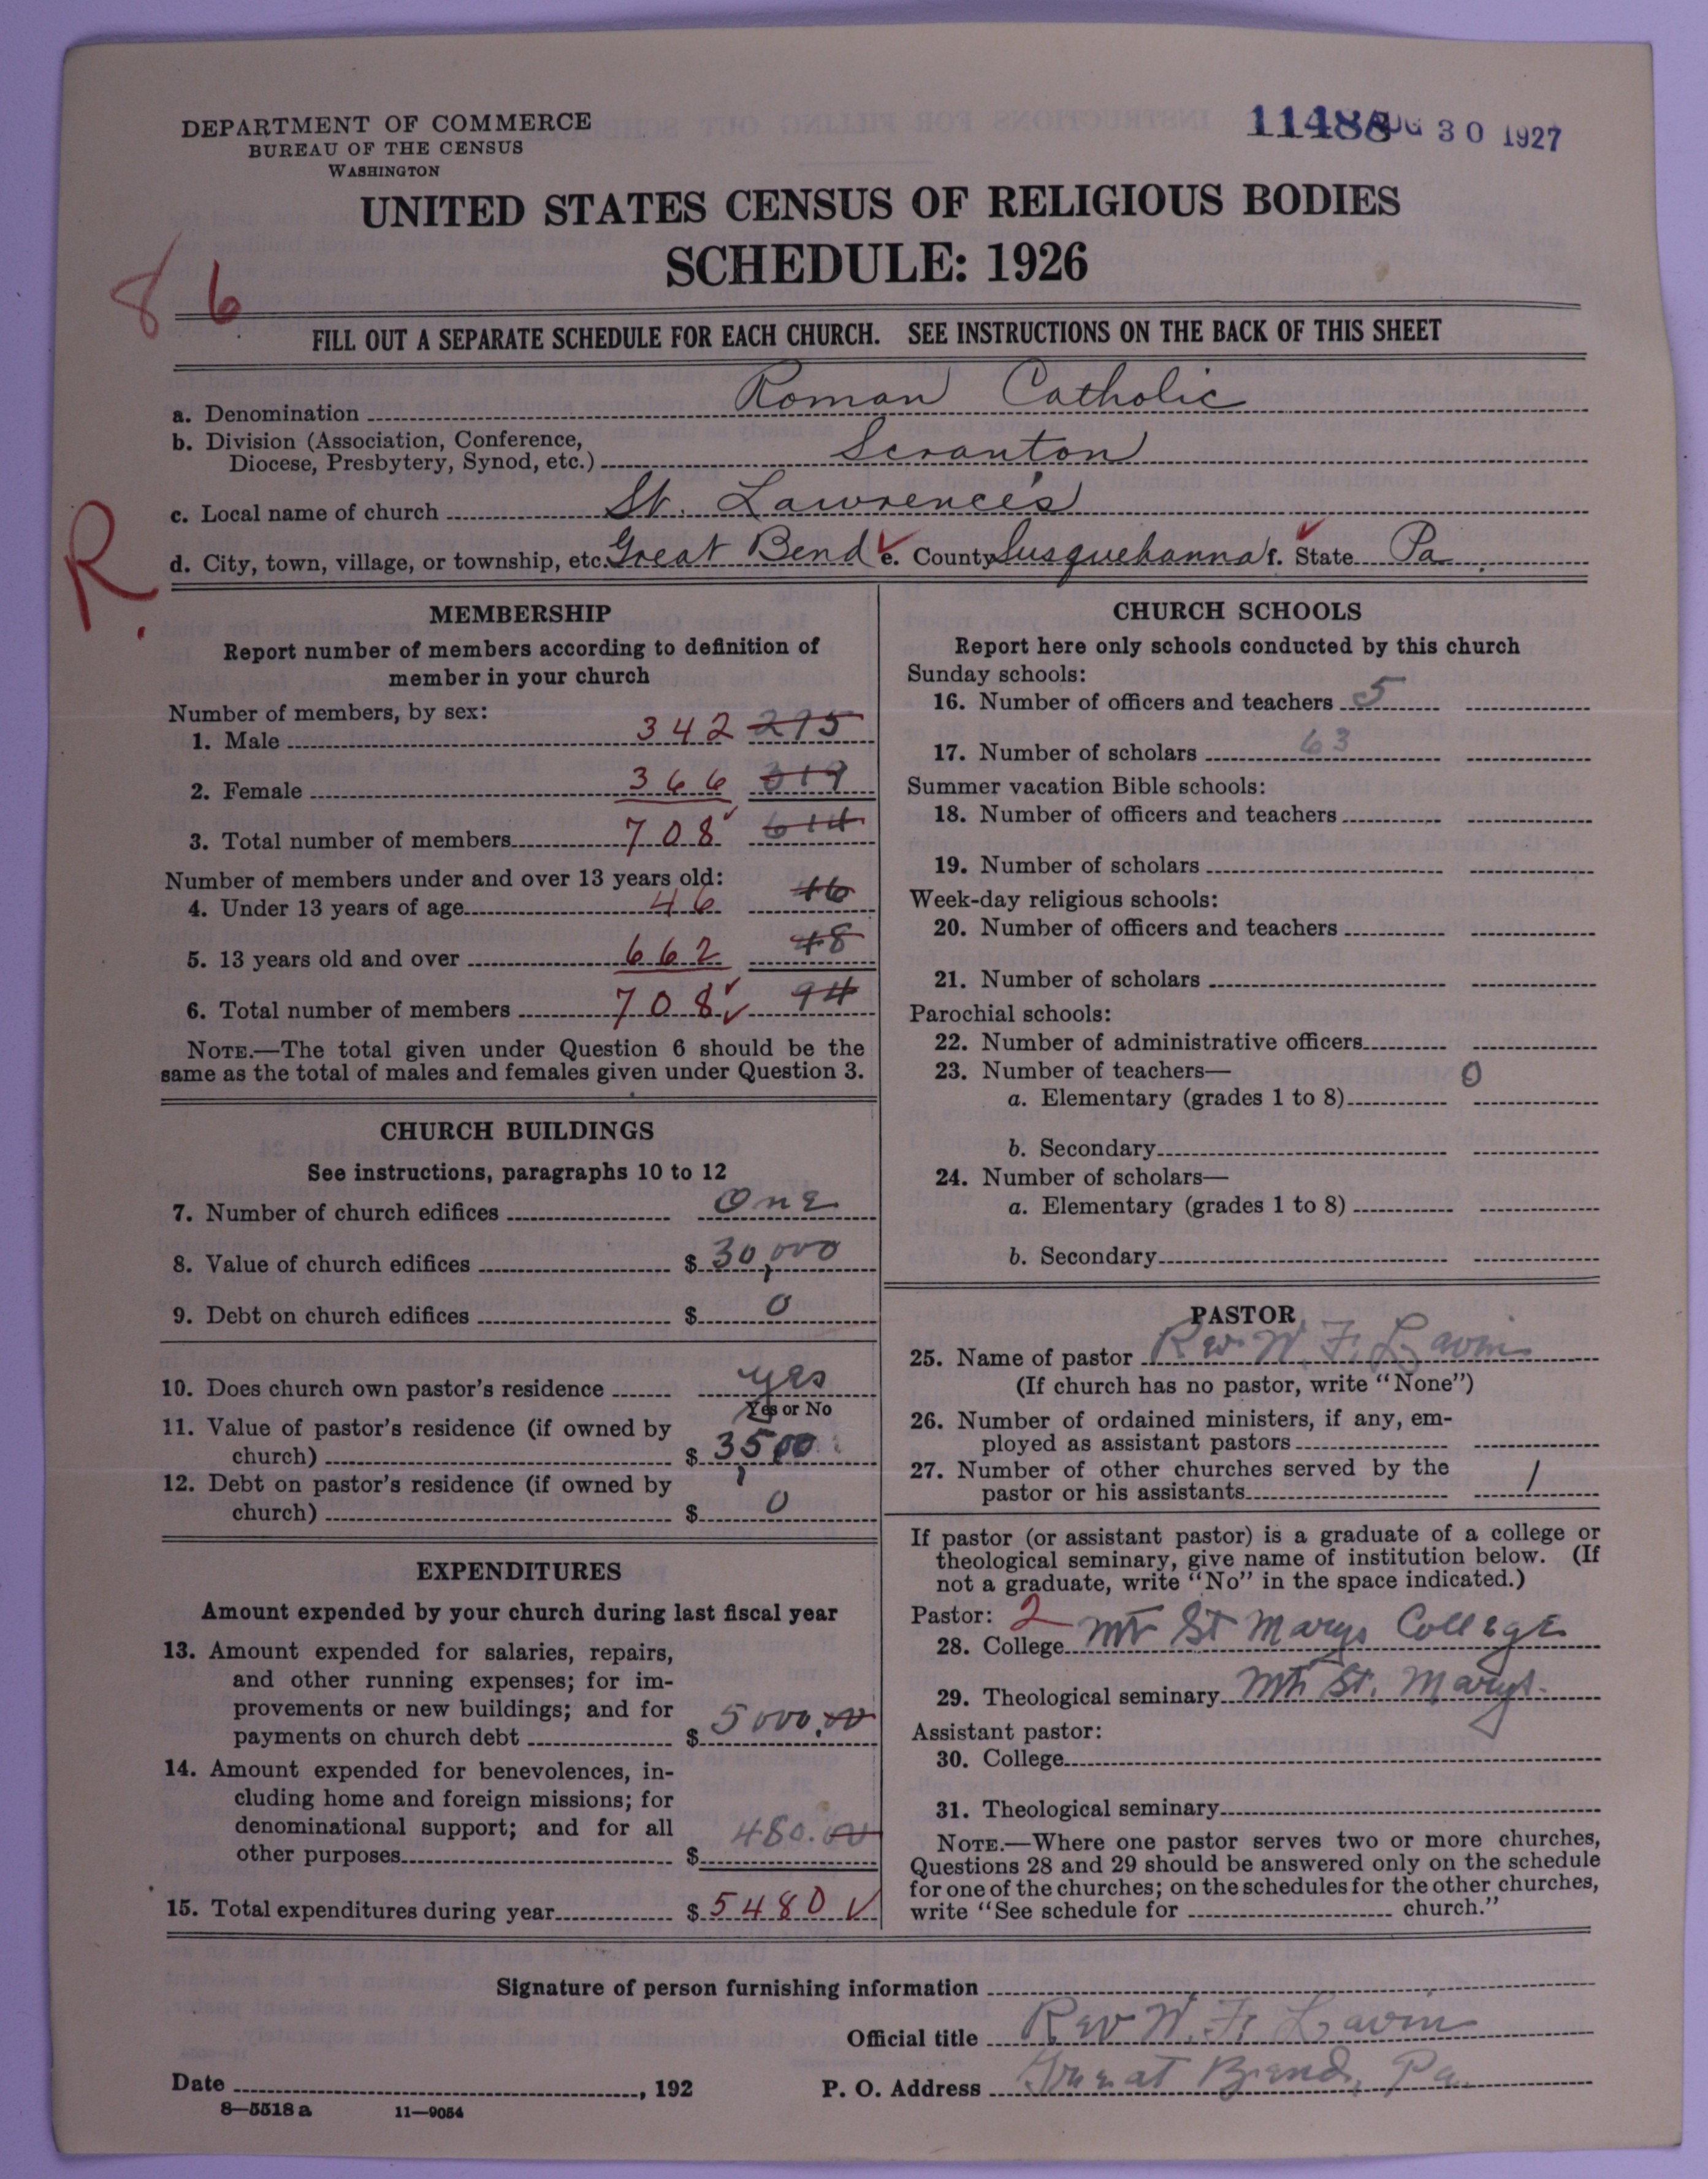 DEPARTMENT OF COMMERCE
BUREAU OF THE CENSUS
WASHINGTON
11488 AUG 30 1927
UNITED STATES CENSUS OF RELIGIOUS BODIES
SCHEDULE: 1926
8 6
FILL OUT A SEPARATE SCHEDULE FOR EACH CHURCH. SEE INSTRUCTIONS ON THE BACK OF THIS SHEET
a. Denomination Roman Catholic
b. Division (Association, Conference,
Diocese, Presbytery, Synod, etc.) Scranton
c. Local name of church St. Lawrence's
R.
d. City, town, village, or township, etc. Great Bend e. County Susquehanna f. State Pa
MEMBERSHIP
Report number of members according to definition of
member in your church
Number of members, by sex:
1. Male 342 295
2. Female 366 319
3. Total number of members 708 614
Number of members under and over 13 years old:
4. Under 13 years of age 46 46
5. 13 years old and over 662 48
6. Total number of members 708 94
NOTE.—The total given under Question 6 should be the
same as the total of males and females given under Question 3.
CHURCH BUILDINGS
See instructions, paragraphs 10 to 12
7. Number of church edifices One
8. Value of church edifices $ 30,000
9. Debt on church edifices $ 0
10. Does church own pastor's residence yes
Yes or No
11. Value of pastor's residence (if owned by
church) $ 3,500
12. Debt on pastor's residence (if owned by
church) $ 0
EXPENDITURES
Amount expended by your church during last fiscal year
13. Amount expended for salaries, repairs,
and other running expenses; for im-
provements or new buildings; and for
payments on church debt $ 5000.00
14. Amount expended for benevolences, in-
cluding home and foreign missions; for
denominational support; and for all
other purposes $ 480.00
15. Total expenditures during year $ 5480
CHURCH SCHOOLS
Report here only schools conducted by this church
Sunday schools:
16. Number of officers and teachers 5
17. Number of scholars 63
Summer vacation Bible schools:
18. Number of officers and teachers
19. Number of scholars
Week-day religious schools:
20. Number of officers and teachers
21. Number of scholars
Parochial schools:
22. Number of administrative officers
23. Number of teachers— 0
a. Elementary (grades 1 to 8)
b. Secondary
24. Number of scholars—
a. Elementary (grades 1 to 8)
b. Secondary
PASTOR
25. Name of pastor Rev. W. F. Lavin
(If church has no pastor, write "None")
26. Number of ordained ministers, if any, em-
ployed as assistant pastors
27. Number of other churches served by the
pastor or his assistants 1
If pastor (or assistant pastor) is a graduate of a college or
theological seminary, give name of institution below. (If
not a graduate, write "No" in the space indicated.)
Pastor: 2
28. College Mt St Marys College
29. Theological seminary Mt. St. Marys.
Assistant pastor:
30. College
31. Theological seminary
NOTE.—Where one pastor serves two or more churches,
Questions 28 and 29 should be answered only on the schedule
for one of the churches; on the schedules for the other churches,
write "See schedule for church."
Signature of person furnishing information
Official title Rev W. F. Lavin
Date , 192
P. O. Address Great Bend, Pa.
8—5518 a 11—9054